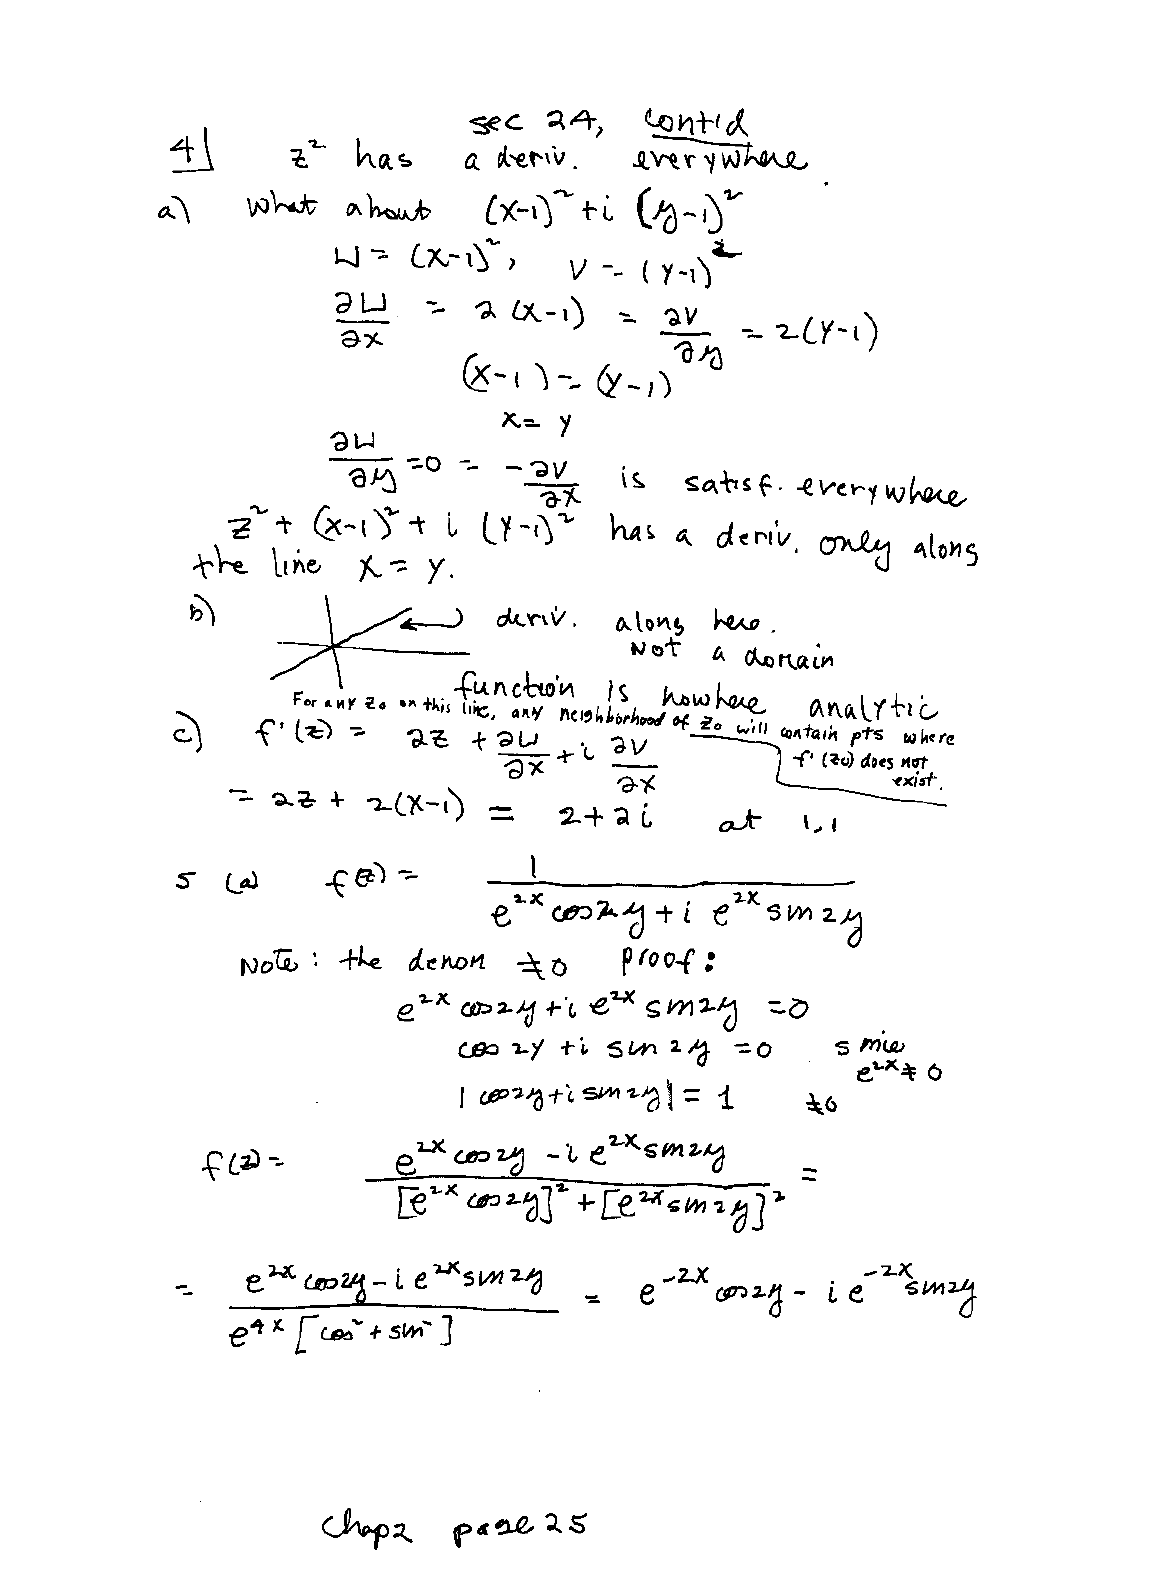 sec 24, cont'd
4] z² has a deriv. everywhere.
a) What about (x-1)² + i (y-1)²
u = (x-1)², v = (y-1)²
∂u/∂x = 2(x-1) = ∂v/∂y = 2(y-1)
(x-1) = (y-1)
x = y
∂u/∂y = 0 = -∂v/∂x is satisf. everywhere
z² + (x-1)² + i (y-1)² has a deriv. only along
the line x = y.
b) deriv. along here.
Not a domain
function is nowhere analytic
For any z₀ on this line, any neighborhood of z₀ will contain pts where
f'(z₀) does not
exist.
c) f'(z) = 2z + ∂u/∂x + i ∂v/∂x
= 2z + 2(x-1) = 2+2i at 1,1
5 (a) f(z) = 1/(e^{2x} cos2y + i e^{2x} sin2y)
Note: the denom ≠0 proof:
e^{2x} cos2y + i e^{2x} sin2y = 0
cos 2y + i sin 2y = 0 since
e^{2x} ≠ 0
|cos2y + i sin2y| = 1 ≠0
f(z) = (e^{2x} cos2y - i e^{2x} sin2y)/([e^{2x} cos2y]² + [e^{2x} sin2y]²) =
= (e^{2x} cos2y - i e^{2x} sin2y)/(e^{4x} [cos² + sin²]) = e^{-2x} cos2y - i e^{-2x} sin2y
Chap2 page 25